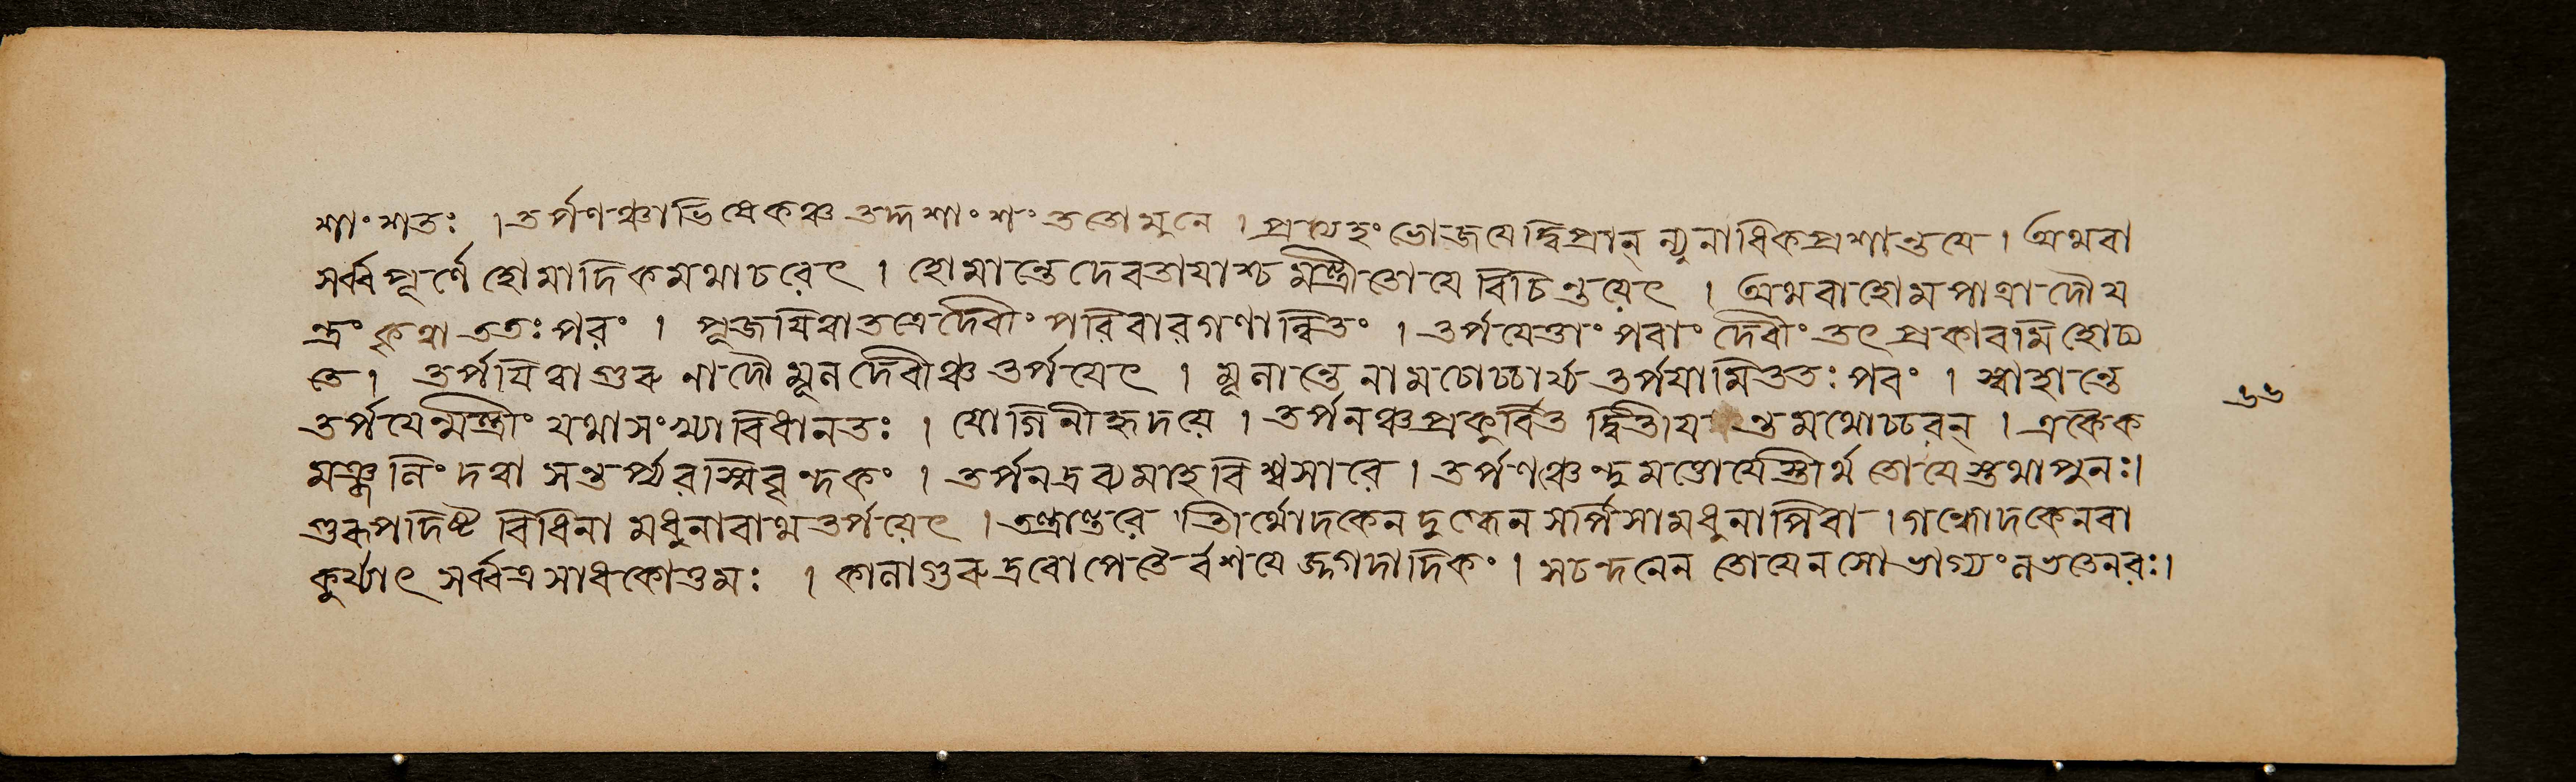 শাংশতঃ । তর্পণঞ্চাভিষেকঞ্চ তদ্দশাংশং ততোমুনে । প্রত্যহং ভোজয়েদ্বিপ্রান্ ন্যুনাধিকপ্রশান্তয়ে । অথবা
সর্ব্বপূর্ণে হোমাদিকমথাচরেৎ । হোমান্তেদেবতাযাশ্চ মন্ত্রীতোযে বিচিন্তয়েৎ । অথবাহোমপাত্রাদৌয
ন্ত্রং কৃত্বা ততঃপরং । পূজযিত্বাতত্রেদেবীং পরিবারগণান্বিতং । তর্পযেত্তাং পরাং দেবীং তৎপ্রকারমিহোচ্য
তে । তর্পযিত্বাগুরুনাদৌ মূলদেবীঞ্চ তর্পয়েৎ । মূলান্তে নামচোচ্চার্য্য তর্পযামিততঃপরং । স্বাহান্তে
তর্পযেন্মন্ত্রীং যথাসংখ্যাবিধানতঃ । যোগিনীহৃদয়ে । তর্পনঞ্চপ্রকুর্বিত দ্বিতীযান্তমথোচ্চরন্ । একৈক
মঞ্জলিংদত্বা সন্তর্প্যরস্মিবৃন্দকং । তর্পনদ্রব্যমাহবিশ্বসারে । তর্পণঞ্চেন্দুমত্তোযেস্তীর্থতোযেস্তথাপুনঃ।
গুরূপদিষ্ট বিধিনা মধুনাবাথতর্পয়েৎ । তন্ত্রান্তরে । তীর্থোদকেন দুগ্ধেন সর্পিসামধুনাপিবা । গন্ধোদকেনবা
কুর্য্যাৎ সর্ব্বত্রসাধকোত্তমঃ । কালাগুরুদ্রবোপেতৈর্বশযেজ্জগদাদিকং । সচন্দনেন তোযেনসৌভাগ্যং লভতেনরঃ।
৬৬